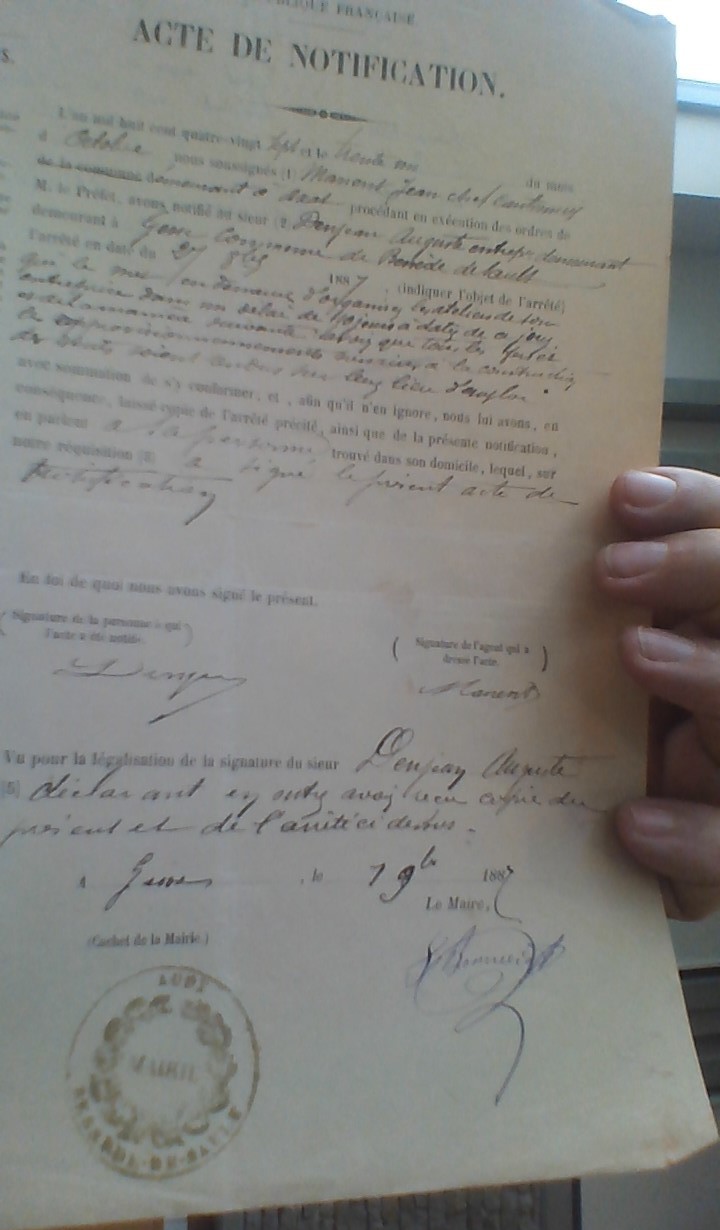 RÉPUBLIQUE FRANÇAISE
ACTE DE NOTIFICATION.
L'an mil huit cent quatre-vingt sept et le trente un du mois
d Octobre nous soussignés (1) Manent Jean chef cantonnier
de la commune demeurant à Axat procédant en exécution des ordres de
M. le Préfet, avons notifié au sieur (2) Denjean Auguste entrepr demeurant
demeurant à commune de Belvède de Sault
l'arrêté en date du 27 1887, (indiquer l'objet de l'arrêté)
qui le met en demeure d'organiser les ateliers de son
entreprise dans un délai de 10 jours à dater de ce jour
et de la manière suivante savoir que tous les
approvisionnements à la construction
des soient rendus sur leur lieu d'emploi.
avec sommation de s'y conformer, et, afin qu'il n'en ignore, nous lui avons, en
conséquence, laissé copie de l'arrêté précité, ainsi que de la présente notification,
en parlant à sa personne, trouvé dans son domicile, lequel, sur
notre réquisition a signé le présent acte de
notification
En foi de quoi nous avons signé le présent.
(Signature de la personne à qui l'acte a été notifié.)
(Signature de l'agent qui a dressé l'acte.)
Manent
Vu pour la légalisation de la signature du sieur Denjean Auguste
(5) déclarant en outre avoir reçu copie du
présent et de l'arrêté ci dessus.
A , le 7 9bre 1887
Le Maire,
(Cachet de la Mairie.)
AUDE
MAIRIE